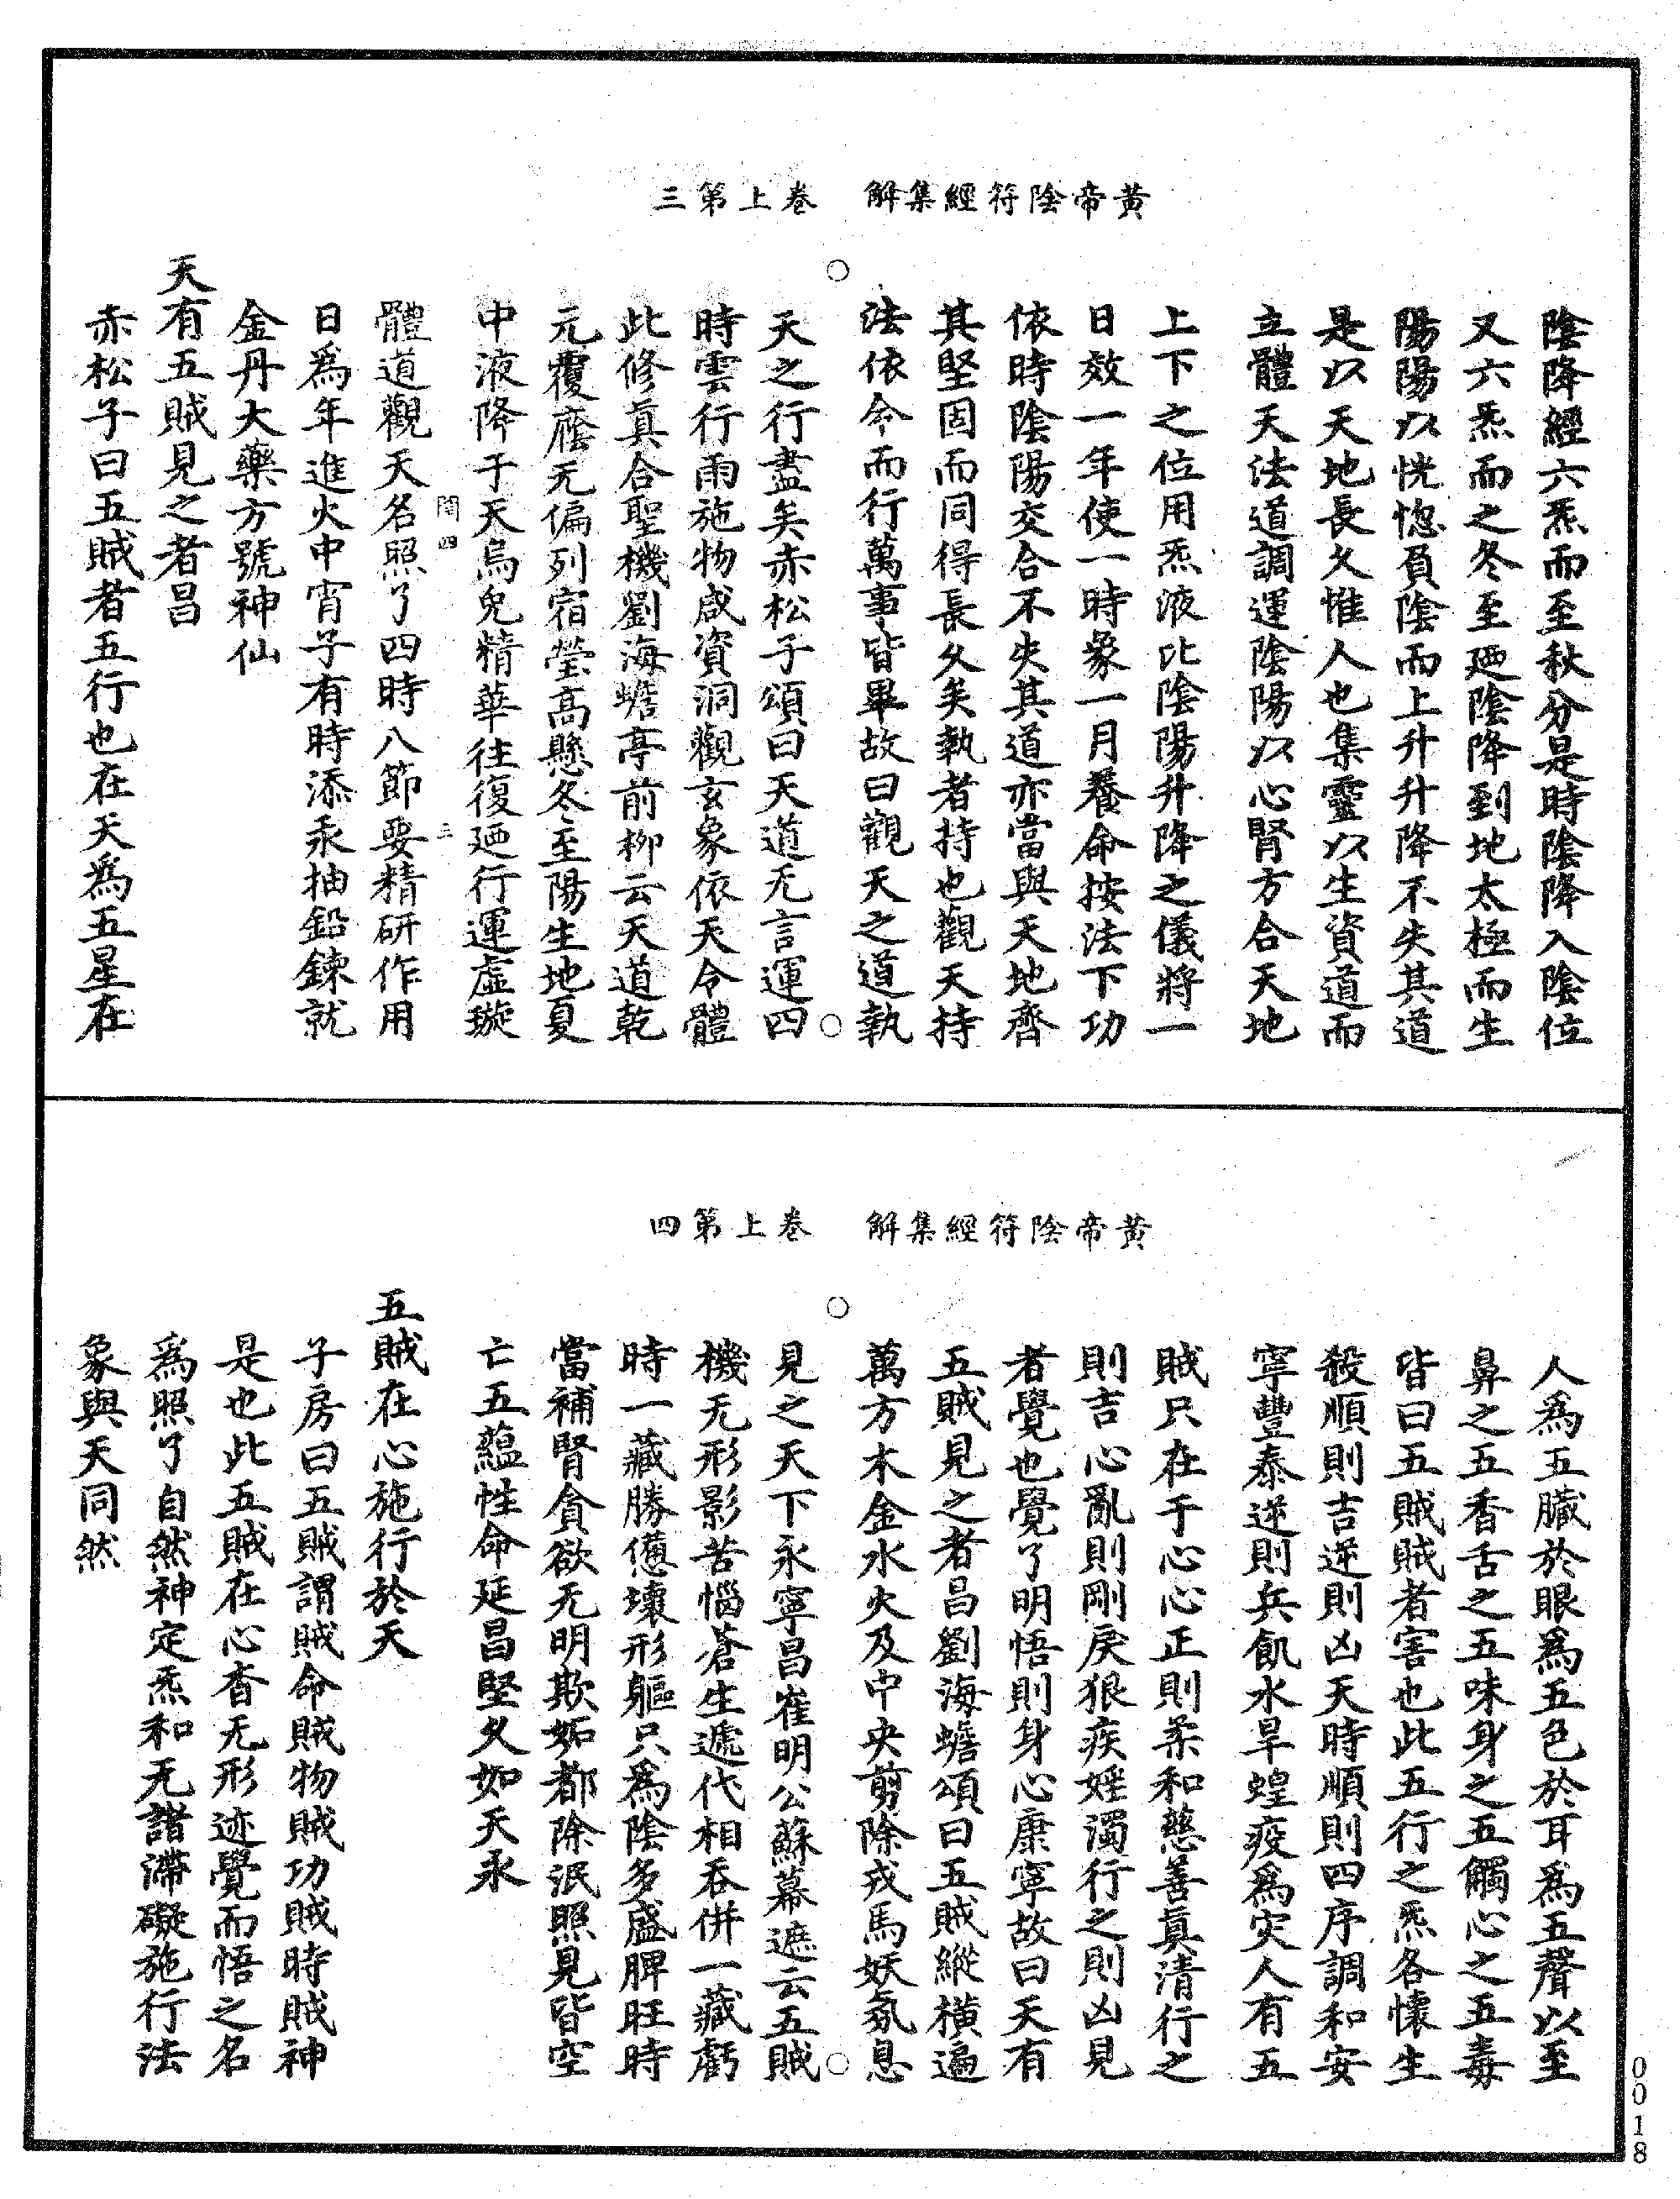 黃帝陰符經集解　卷上第三
陰降經六炁而至秋分是時陰降入陰位
又六炁而之冬至廼陰降到地太極而生
陽陽以恍惚負陰而上升升降不失其道
是以天地長久惟人也集靈以生資道而
立體天法道調運陰陽以心腎方合天地
上下之位用炁液比陰陽升降之儀將一
日效一年使一時象一月養命按法下功
依時陰陽交合不失其道亦當與天地齊
其堅固而同得長久矣執者持也觀天持
法依令而行萬事皆畢故曰觀天之道執
天之行盡矣赤松子頌曰天道无言運四
時雲行雨施物咸資洞觀玄象依天令體
此修真合聖機劉海蟾亭前柳云天道乾
元覆廕无偏列宿瑩高懸冬至陽生地夏
中液降于天烏兔精華往復廼行運虛璇
閏四　三
體道觀天名照了四時八節要精研作用
日爲年進火中宵子有時添汞抽鉛鍊就
金丹大藥方號神仙
天有五賊見之者昌
赤松子曰五賊者五行也在天爲五星在
黃帝陰符經集解　卷上第四
人爲五臟於眼爲五色於耳爲五聲以至
鼻之五香舌之五味身之五觸心之五毒
皆曰五賊賊者害也此五行之炁各懷生
殺順則吉逆則凶天時順則四序調和安
寧豐泰逆則兵飢水旱蝗疫爲灾人有五
賊只在于心心正則柔和慈善真清行之
則吉心亂則剛戾狠疾婬濁行之則凶見
者覺也覺了明悟則身心康寧故曰天有
五賊見之者昌劉海蟾頌曰五賊縱橫遍
萬方木金水火及中央剪除戎馬妖氛息
見之天下永寧昌崔明公蘇幕遮云五賊
機无形影苦惱蒼生遞代相吞併一藏虧
時一藏勝憊壞形軀只爲陰多盛脾旺時
當補腎貪欲无明欺妬都除泯照見皆空
亡五蘊性命延昌堅久如天永
五賊在心施行於天
子房曰五賊謂賊命賊物賊功賊時賊神
是也此五賊在心杳无形迹覺而悟之名
爲照了自然神定炁和无諸滯礙施行法
象與天同然
0018